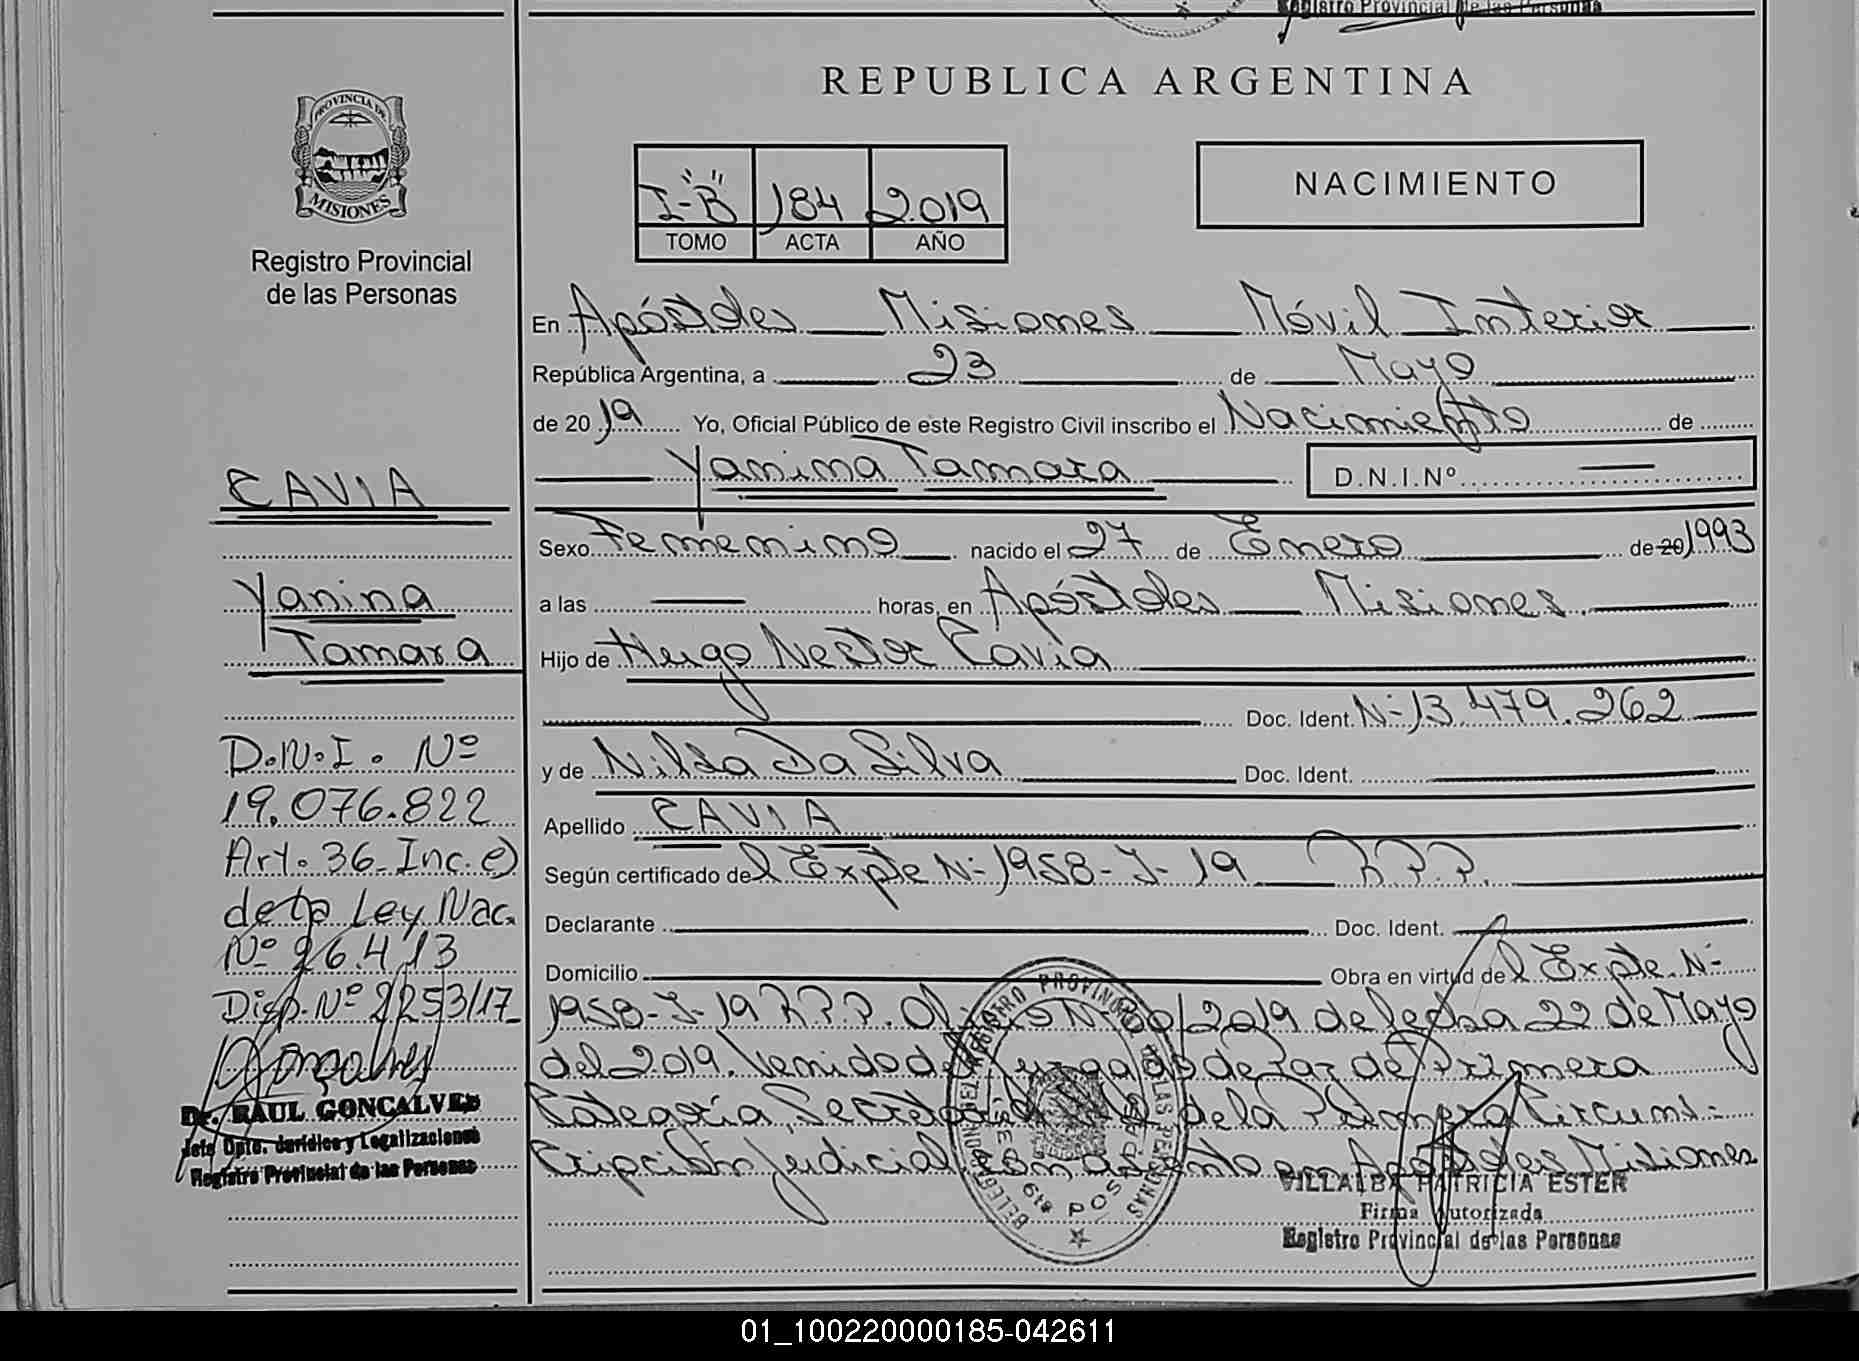 Registro Provincial de las Personas
PROVINCIA DE
MISIONES
Registro Provincial
de las Personas
REPUBLICA ARGENTINA
I-"B" 184 2019
TOMO ACTA AÑO
NACIMIENTO
En Apóstoles Misiones Móvil Interior
República Argentina, a 23 de Mayo
de 2019 Yo, Oficial Público de este Registro Civil inscribo el Nacimiento de
Yanina Tamara D.N.I.Nº
Sexo Femenino nacido el 27 de Enero de 20 1993
a las horas, en Apóstoles Misiones.
Hijo de Hugo Nestor Cavia
Doc. Ident. Nº 13.479.262
y de Nilsa Da Silva Doc. Ident.
Apellido CAVIA
Según certificado del Expte Nº 1958-J-19 R.P.P.
Declarante Doc. Ident.
Domicilio Obra en virtud del Expte. Nº
1958-J-19 R.P.P. Oficio Nº /2019 de fecha 22 de Mayo
del 2019. Venido del Juzgado de Paz de Primera
Categoría, Secretaría de la Primera Circuns-
cripción Judicial, con asiento en Apóstoles Misiones
CAVIA
Yanina
Tamara
D.N.I. Nº
19.076.822
Art. 36 Inc. c)
de la Ley Nac.
Nº 26.413
Disp. Nº 2253/17
Dr. RAUL GONÇALVES
Jefe Dpto. Jurídico y Legalizaciones
Registro Provincial de las Personas
REGISTRO PROVINCIAL DE LAS PERSONAS
VILLALBA PATRICIA ESTER
Firma Autorizada
Registro Provincial de las Personas
01_100220000185-042611